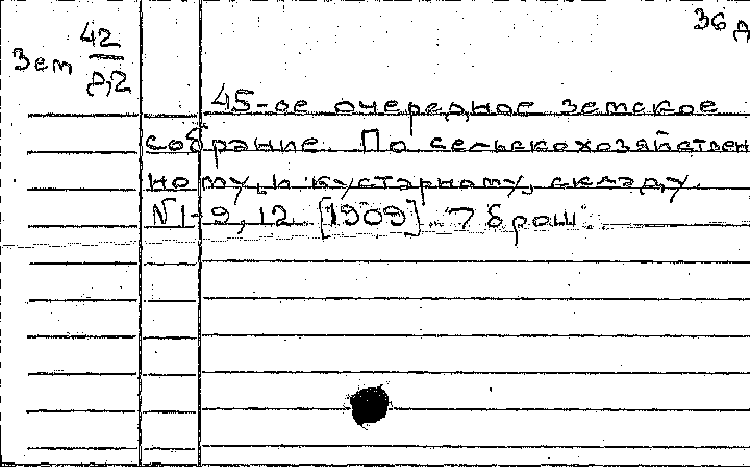 36 д
Зем 42
д,2
45-ое очередное земское
собрание. По сельскохозяйствен
ному и кустарному складу.
N1-9, 12. [1909]. 7 брош.